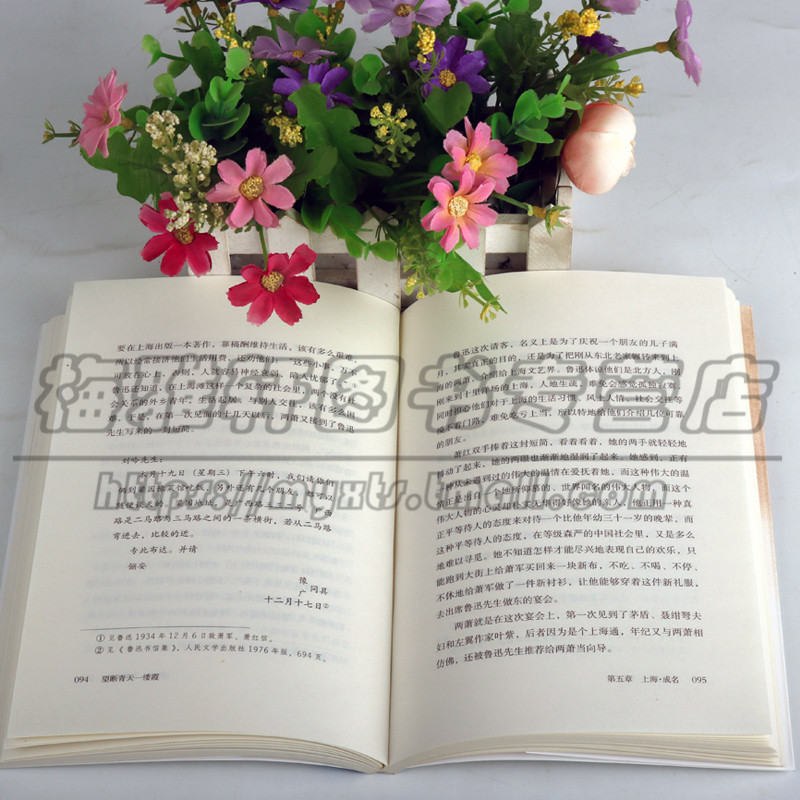 要在上海出版一本著作，靠稿酬维持生活，该有多么艰难，
所以经常接济他们生活用费，还劝他们：“这些小事，万不
可放在心上，否则，人就容易神经衰弱，陷入忧郁了。”①
鲁迅还知道，在上海滩这样一个复杂的社会里，两个没有社
会关系的外乡青年，生活起居、与别人交往，
于是，在第一次见面的十几天以后，两萧又接到了鲁迅
先生写来的一封短简。
刘吟先生：
本月十九日（星期三）下午六时，我们请你们
俩到梁园豫菜馆吃饭，另外还有几个朋友，都可以
随便谈天的。梁园地址，是广西路三三二号。广西
路是二马路与三马路之间的一条横街，若从二马路
弯进去，比较的近。
专此布达，并请
俪安
豫
广 同具
十二月十七日②
① 见鲁迅1934年12月6日致萧军、萧红信。
② 见《鲁迅书信集》，人民文学出版社1976年版，694页。
094 望断青天一缕霞
鲁迅这次请客，名义上是为了庆祝一个朋友的儿子满
月，其实真正的目的，还是为了把刚从东北名家辗转来到上
海的两萧，介绍给上海文艺界。鲁迅体谅他们是北方人，刚
刚来到十里洋场的上海，人地生疏，难免会感觉孤独寂寞，
同时担心他们对于上海的生活习惯、风土人情、社会交往等
摸不着门路，难免吃亏上当，所以特地给他们介绍几位可靠
的朋友。
萧红双手捧着这封短简，看着看着，她的两手就轻轻地
抖动了起来，她的两眼也渐渐地湿润了起来。她感到，正有
一种从未遇到过的伟大的温情在爱抚着她，而这种伟大的温
情正是出自
伟大人物的心灵却朴实无华得好象她的亲人，他正用一种真
正平等待人的态度来对待一个比他年幼三十一岁的晚辈，而
这种平等待人的态度，在等级森严的中国社会里，又是多么
地难以寻觅。她不知道怎样才能尽兴地表现自己的欢乐，只
能跑到大街上给萧军买回来一块新布，不吃、不喝、不停、
不休地给萧军做了一件新衬衫，让他能够穿着这件新礼服，
去出席鲁迅先生做东的宴会。
两萧就是在这次宴会上，第一次见到了茅盾、聂绀弩夫
妇和左翼作家叶紫，后者因为是个上海通，年纪又与两萧相
仿佛，还被鲁迅先生推荐给两萧当向导。
第五章 上海·成名 095
https://myxts.tmall.com